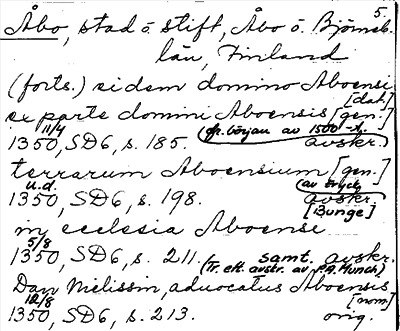 5.
Åbo, stad o. stift, Åbo o. Björneb.
län, Finland
(forts.) eidem domino Aboensi
[dat.]
ex parte domini Aboensis [gen.]
11/4 (fr. början av 1500-t.)
1350, SD6, s. 185. avskr.
terrarum Aboensium [gen.]
u.d. (av tryck
1350, SD6, s. 198. avskr.
[Bunge]
in ecclesia Aboense
5/8 samt. avskr.
1350, SD6, s. 211. (Tr. eft. avskr. av P.A. Munch)
Dan Nielissin, aduocatus Aboensis
12/8 [nom]
1350, SD6, s. 213. orig.